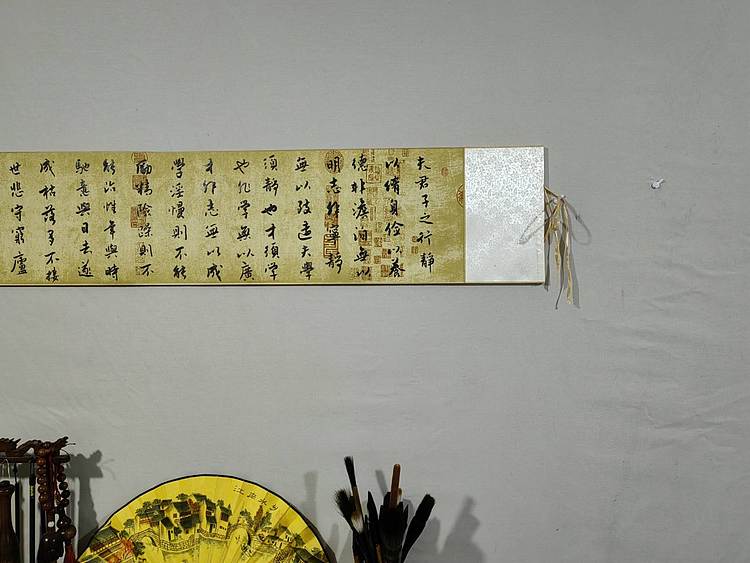 夫君子之行靜
以脩身儉以養
德非澹泊無以
明志非寧靜
無以致遠夫學
須靜也才須學
也非學無以廣
才非志無以成
學淫慢則不能
勵精險躁則不
能治性年與時
馳意與日去遂
成枯落多不接
世悲守窮廬
江南水乡